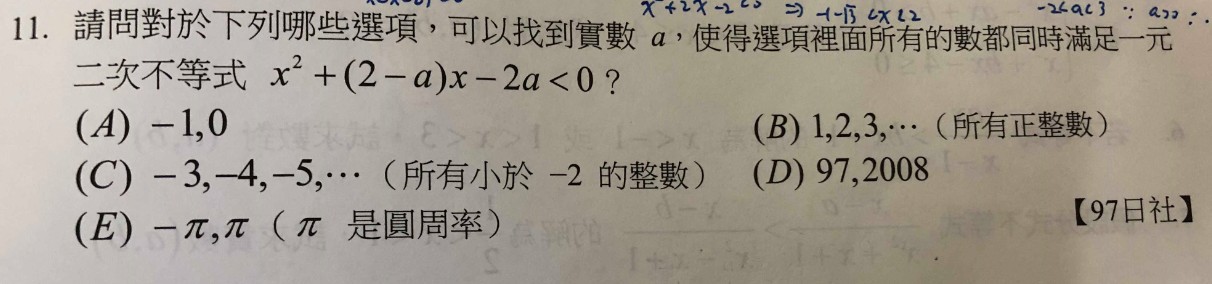 x²+2x-2<0 ⇒ -1-√3<x<2 -2<a<3 ∵ a>0 ∴
11. 請問對於下列哪些選項，可以找到實數 a，使得選項裡面所有的數都同時滿足一元
二次不等式 x²+(2-a)x-2a<0？
(A) -1,0 (B) 1,2,3,…（所有正整數）
(C) -3,-4,-5,…（所有小於 -2 的整數） (D) 97,2008
(E) -π,π（π 是圓周率）
【97日社】